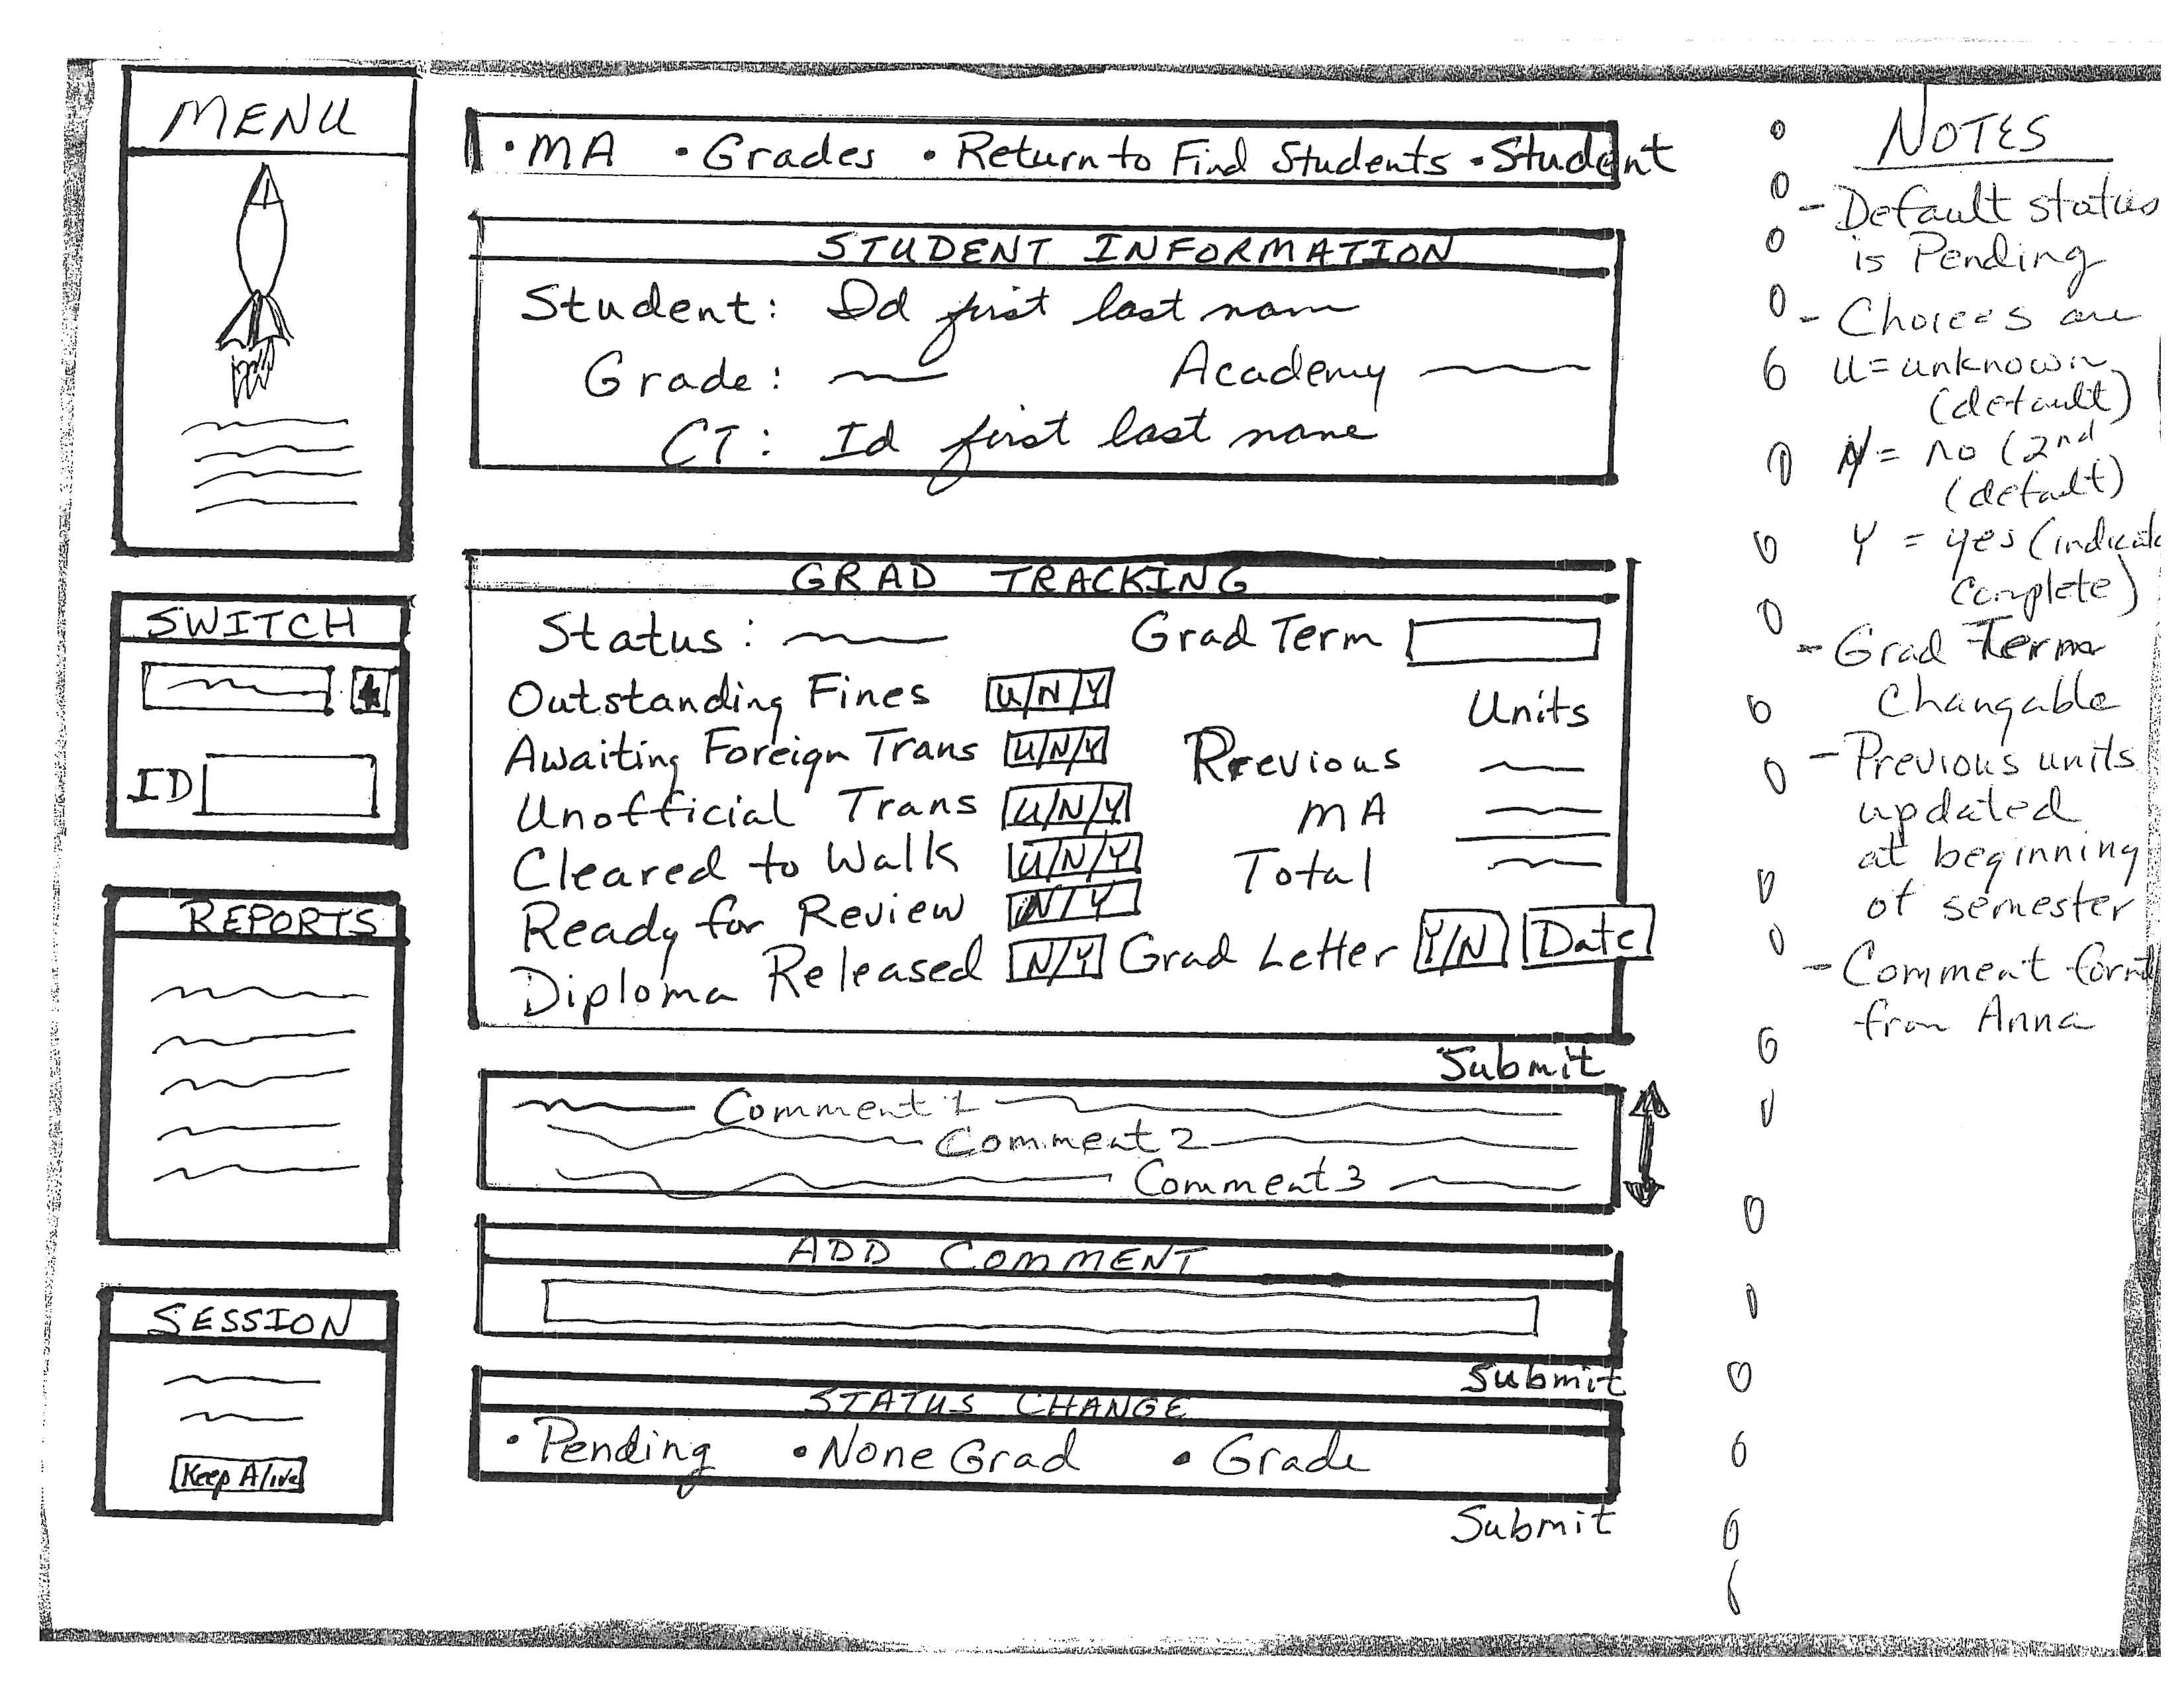 MENU
SWITCH
ID
REPORTS
SESSION
Keep Alive
• MA • Grades • Return to Find Students • Student
STUDENT INFORMATION
Student: Id first last nam
Grade: Academy
CT: Id first last name
GRAD TRACKING
Status: Grad Term
Outstanding Fines U/N/Y
Units
Awaiting Foreign Trans U/N/Y
Previous
Unofficial Trans U/N/Y
MA
Cleared to Walk U/N/Y
Total
Ready for Review N/Y
Diploma Released N/Y Grad Letter Y/N Date
Submit
Comment 1
Comment 2
Comment 3
ADD COMMENT
Submit
STATUS CHANGE
• Pending • None Grad • Grade
Submit
NOTES
- Default status
is Pending
- Choices are
U = unknown
(default)
N = no (2nd
(default)
Y = yes (indicate
complete)
- Grad Term
Changable
- Previous units
updated
at beginning
of semester
- Comment
from Anna